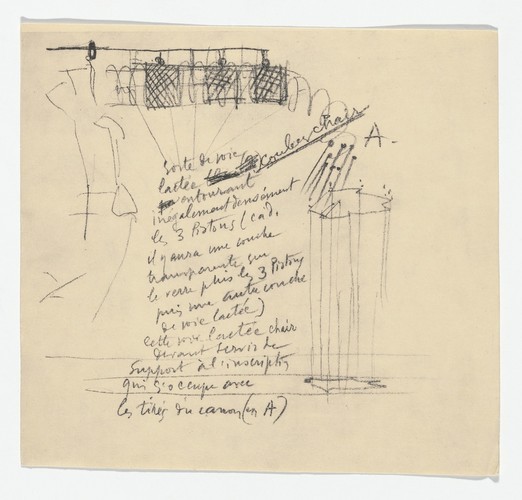 Sorte de voie
lactée couleur chair
entourant
inégalement densément
les 3 Pistons (càd.
il y aura une couche
transparente sur
le verre puis les 3 Pistons
puis une autre couche
de voie lactée)
cette voie lactée chair
devant servir de
support à l'inscription
qui s'occupe avec
les tirés du canon (en A)
A.